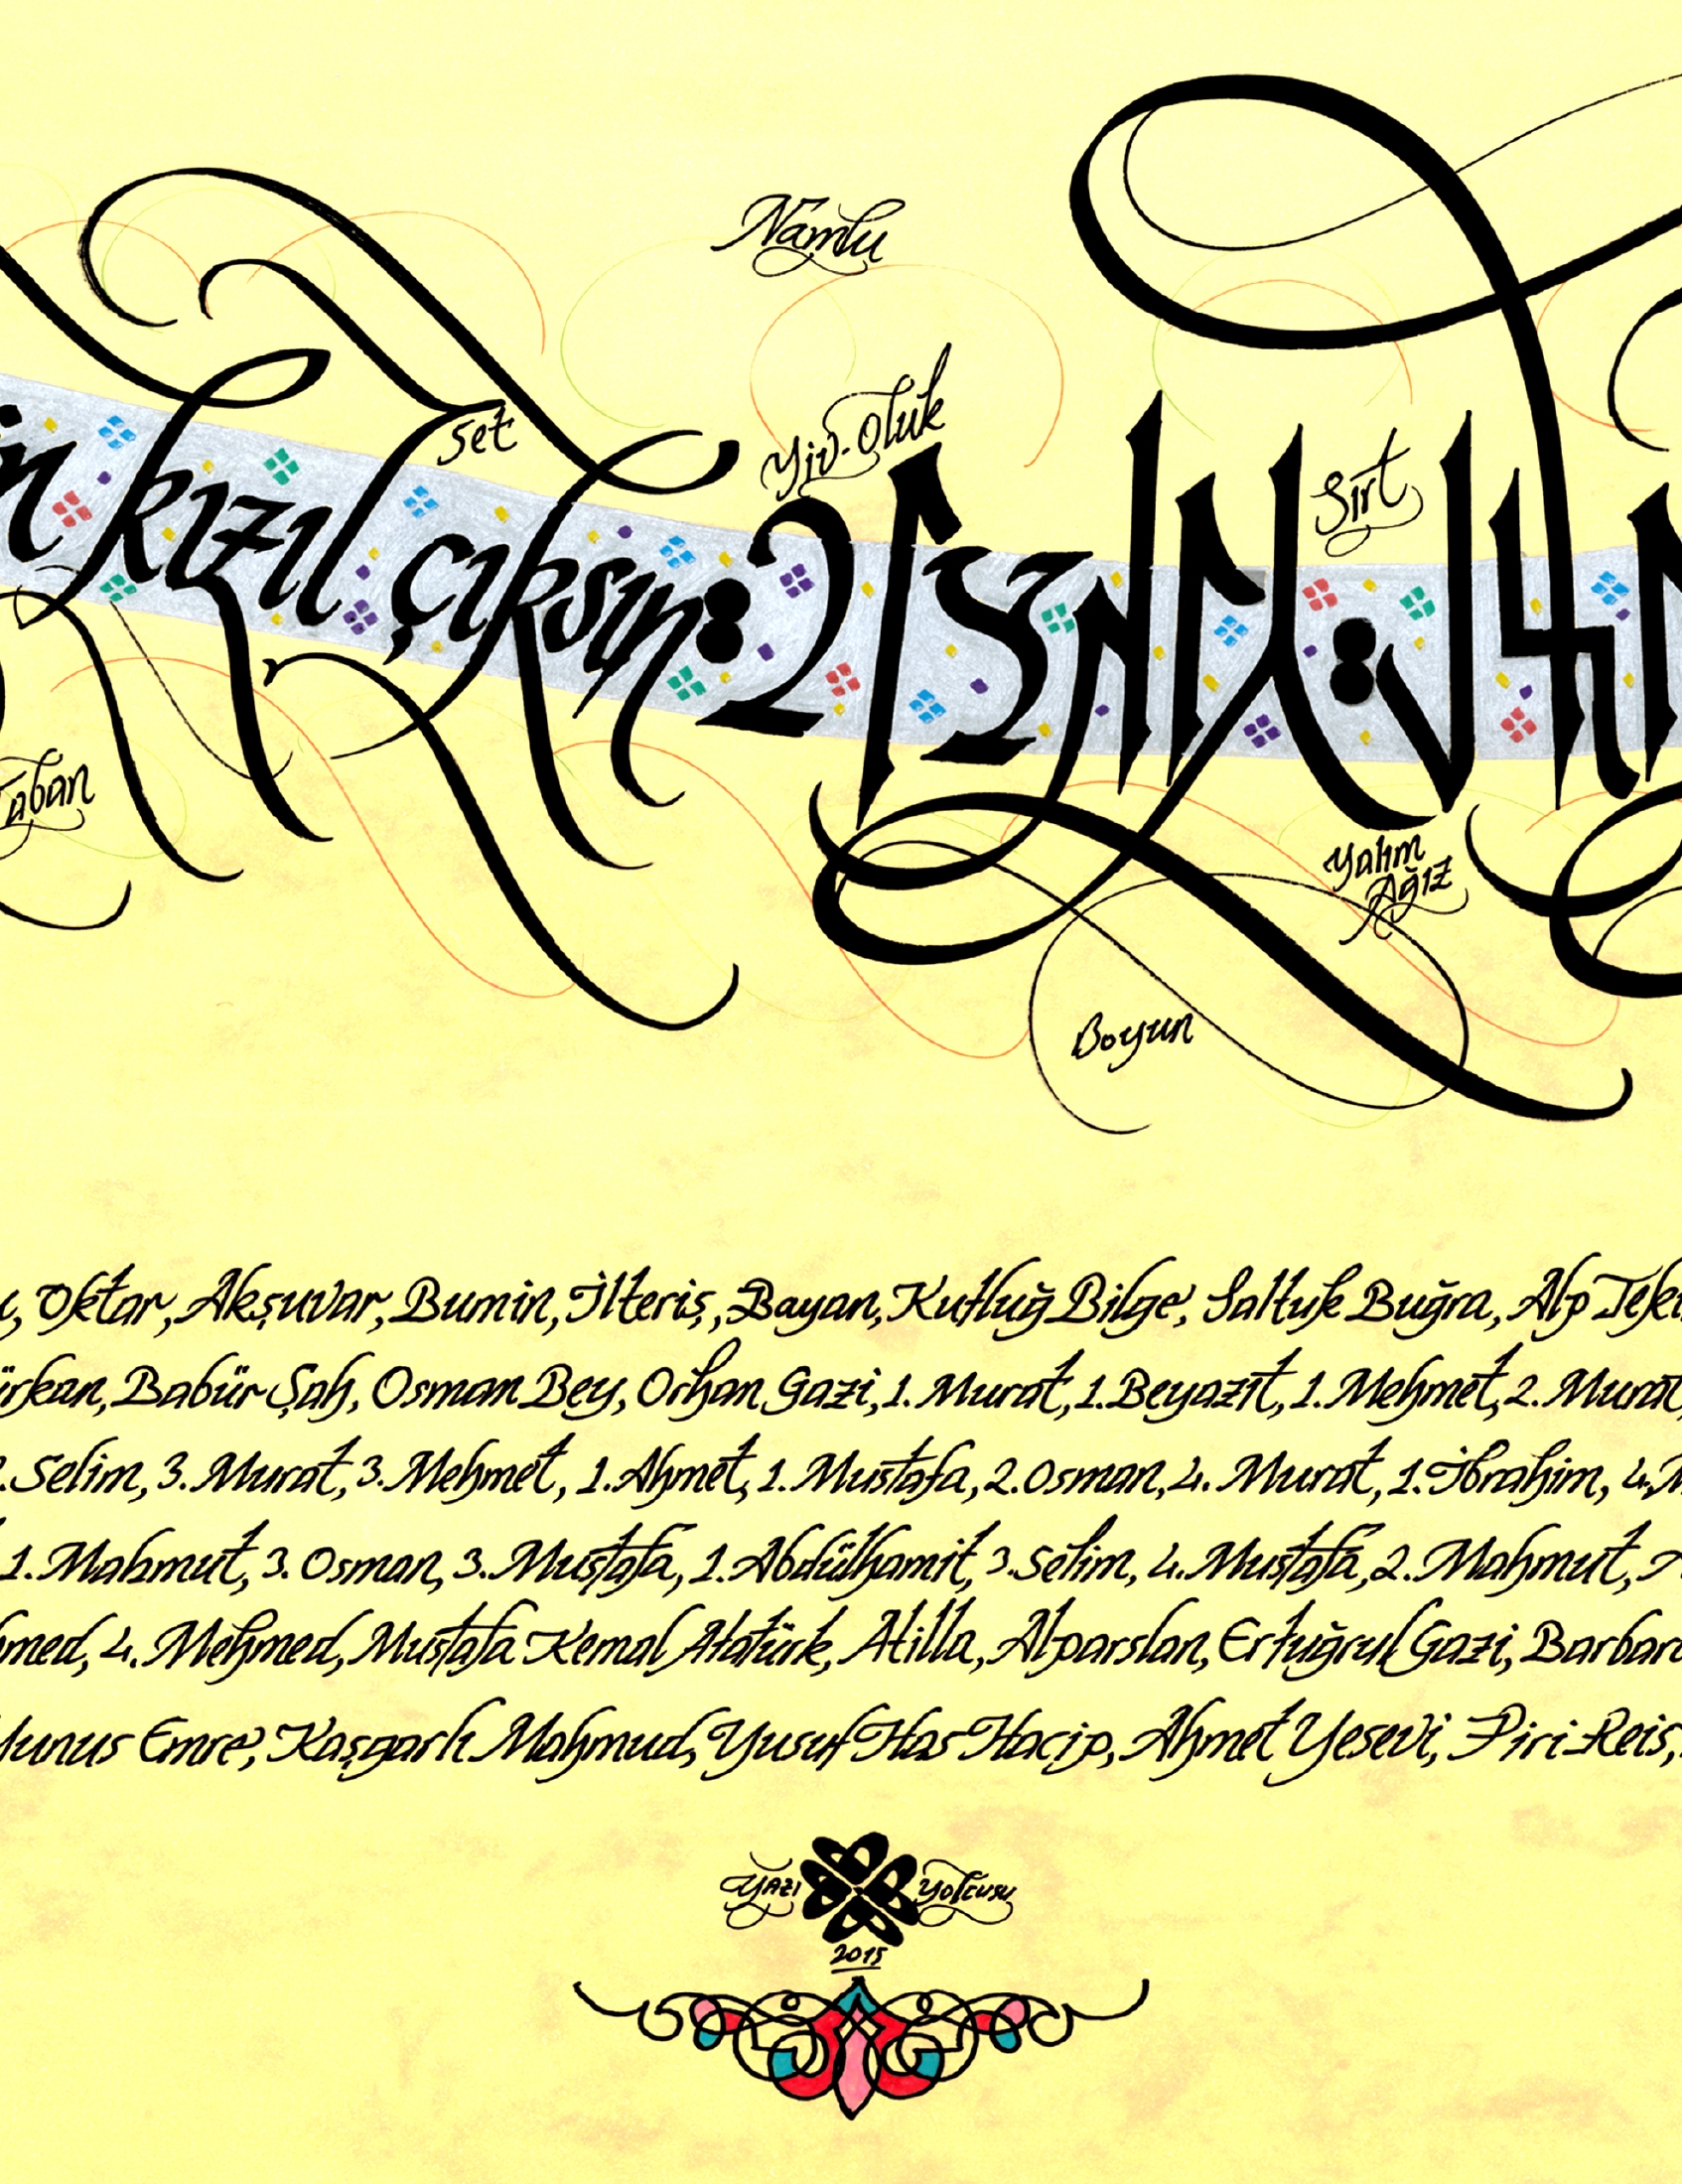 Namlu
Set
Yiv-Oluk
Sırt
kızıl çıksın:
Taban
Yalım
Ağız
Boyun
Oktar, Akşuvar, Bumin, İlteriş, Bayan, Kutluğ Bilge, Saltuk Buğra, Alp Teki
ürkan, Babür Şah, Osman Bey, Orhan Gazi, 1. Murat, 1. Beyazıt, 1. Mehmet, 2. Murat,
. Selim, 3. Murat, 3. Mehmet, 1. Ahmet, 1. Mustafa, 2. Osman, 4. Murat, 1. İbrahim, 4. M
1. Mahmut, 3. Osman, 3. Mustafa, 1. Abdülhamit, 3. Selim, 4. Mustafa, 2. Mahmut,
med, 4. Mehmed, Mustafa Kemal Atatürk, Atilla, Alparslan, Ertuğrul Gazi, Barbaro
Yunus Emre, Kaşgarlı Mahmud, Yusuf Has Hacip, Ahmet Yesevi, Piri Reis,
Yazı Yolcusu
2015